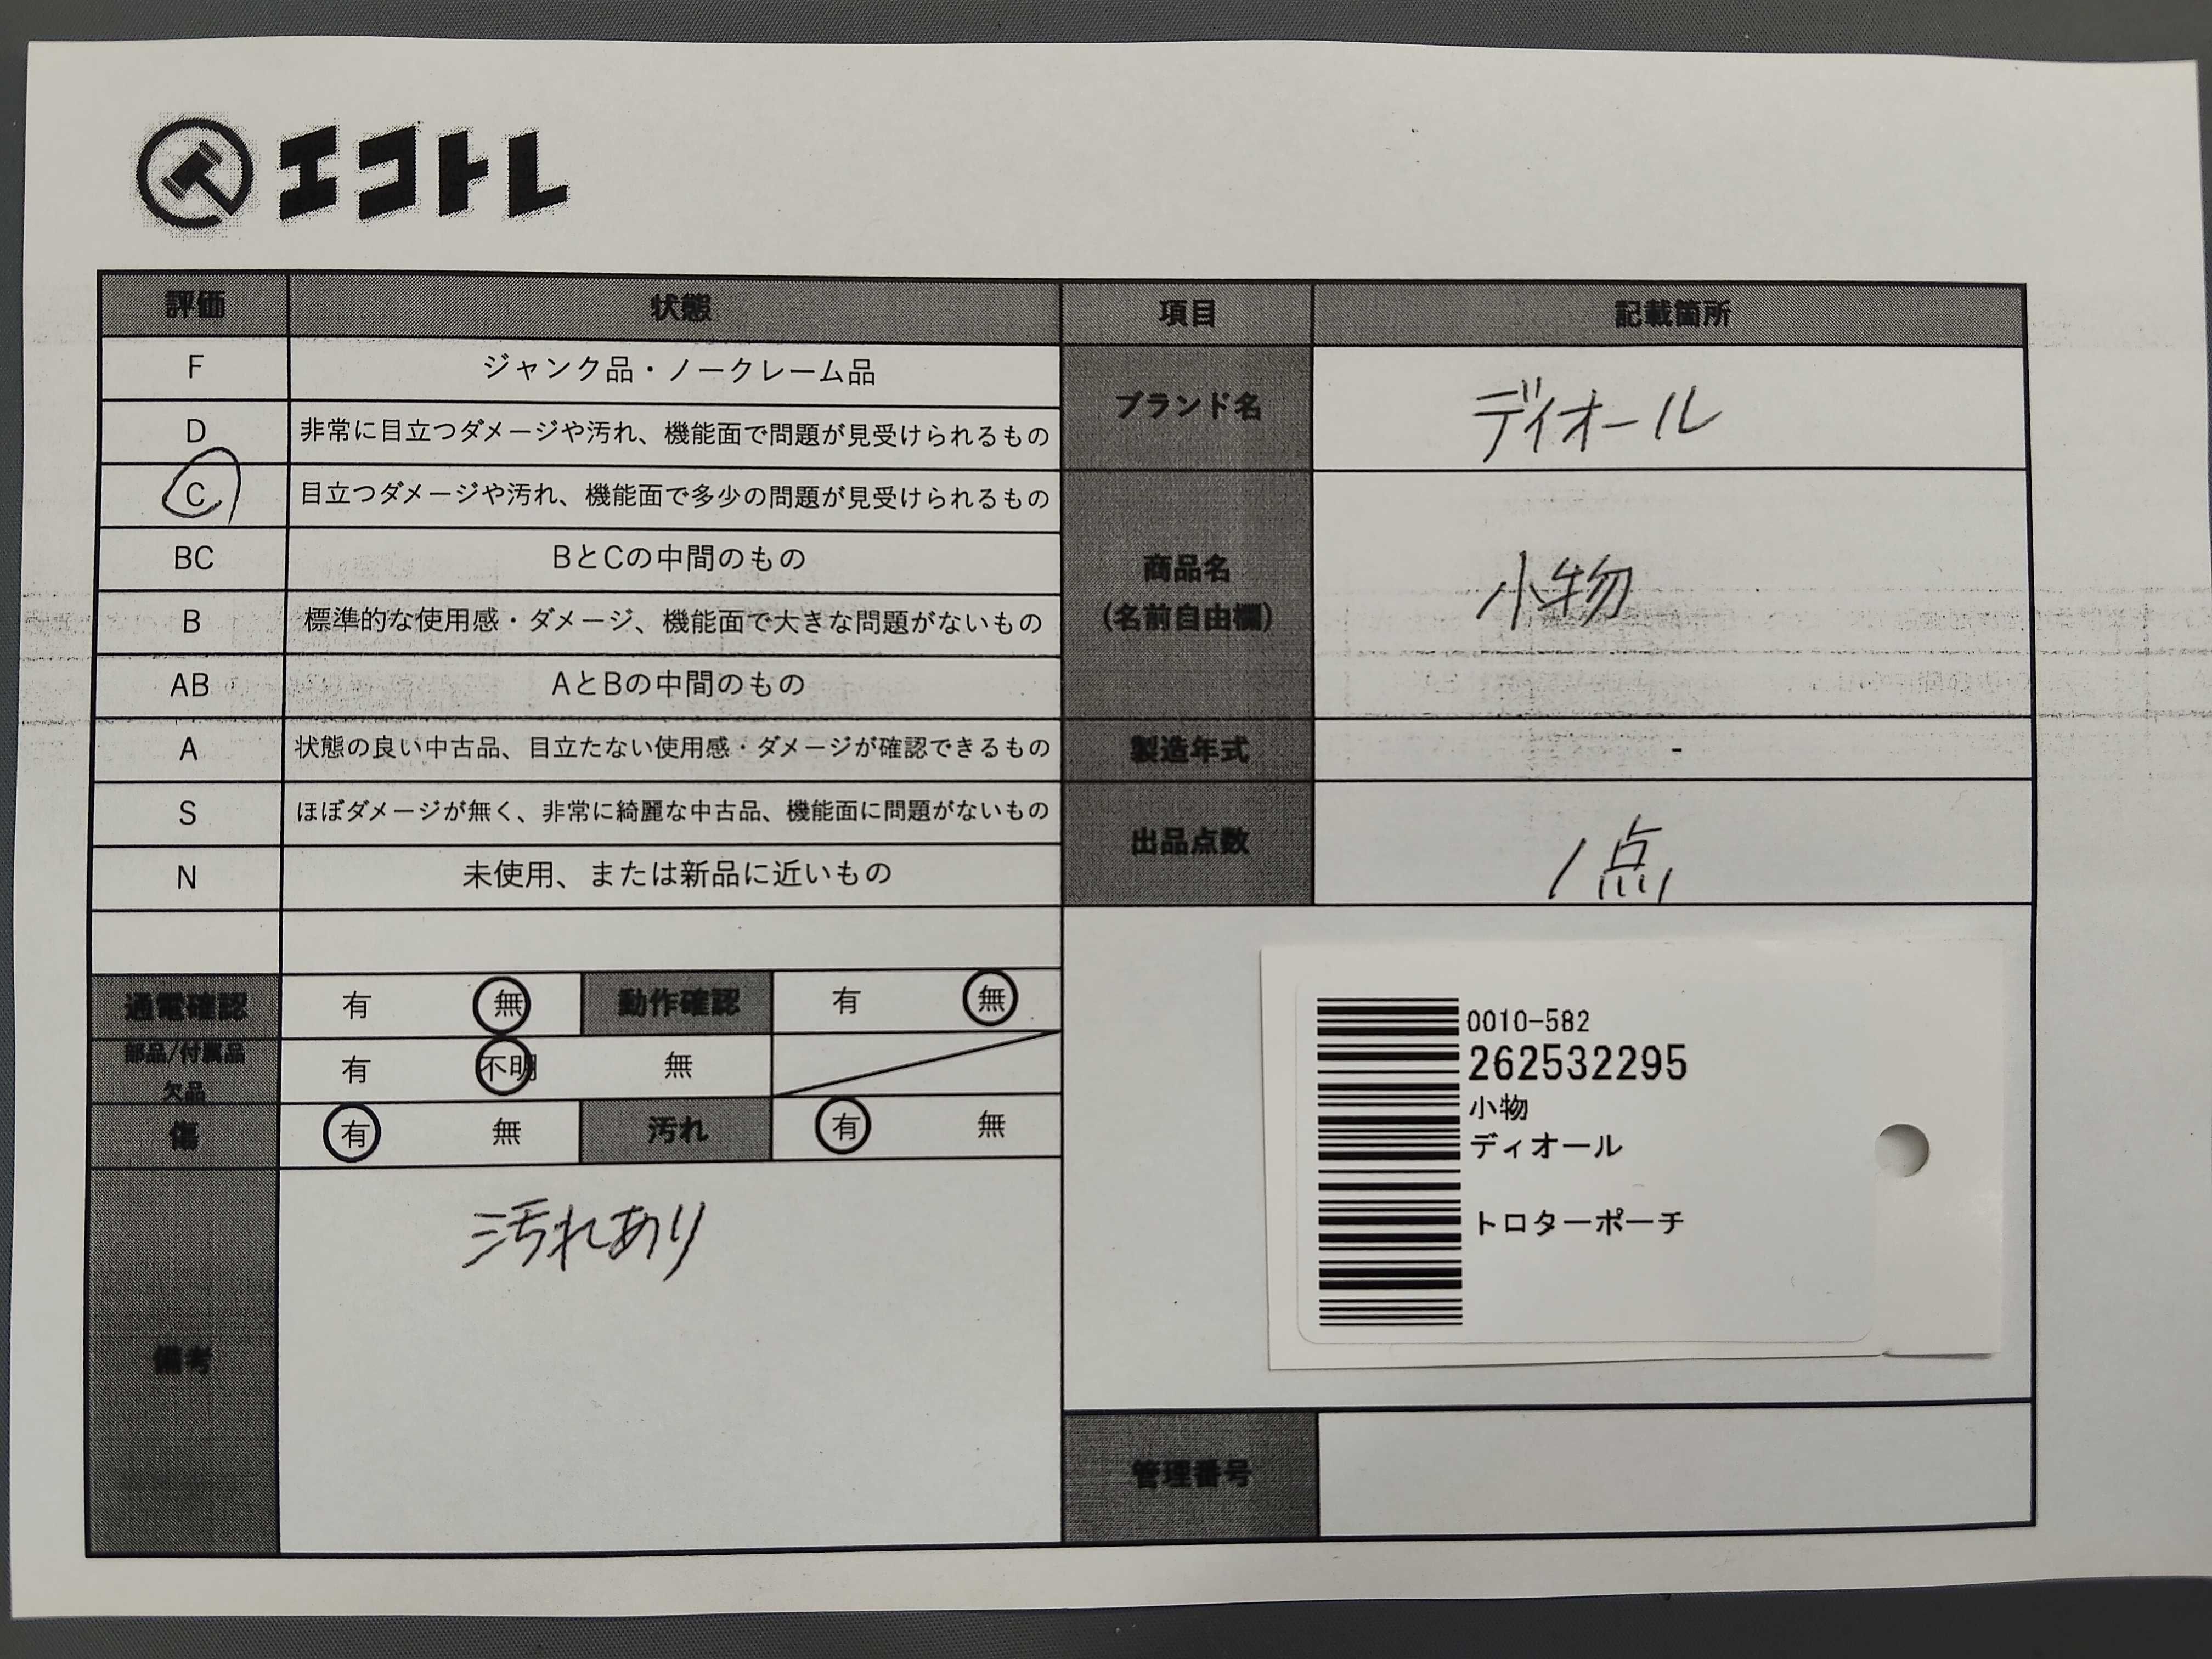 エコトレ
評価 状態 項目 記載箇所
F ジャンク品・ノークレーム品
D 非常に目立つダメージや汚れ、機能面で問題が見受けられるもの
C 目立つダメージや汚れ、機能面で多少の問題が見受けられるもの
BC BとCの中間のもの
B 標準的な使用感・ダメージ、機能面で大きな問題がないもの
AB AとBの中間のもの
A 状態の良い中古品、目立たない使用感・ダメージが確認できるもの
S ほぼダメージが無く、非常に綺麗な中古品、機能面に問題がないもの
N 未使用、または新品に近いもの
ブランド名 ディオール
商品名
(名前自由欄)
小物
製造年式 -
出品点数 1点
通電確認 有 無 動作確認 有 無
部品/付属品
欠品
有 不明 無
傷 有 無 汚れ 有 無
備考
汚れあり
0010-582
262532295
小物
ディオール
トロターポーチ
管理番号